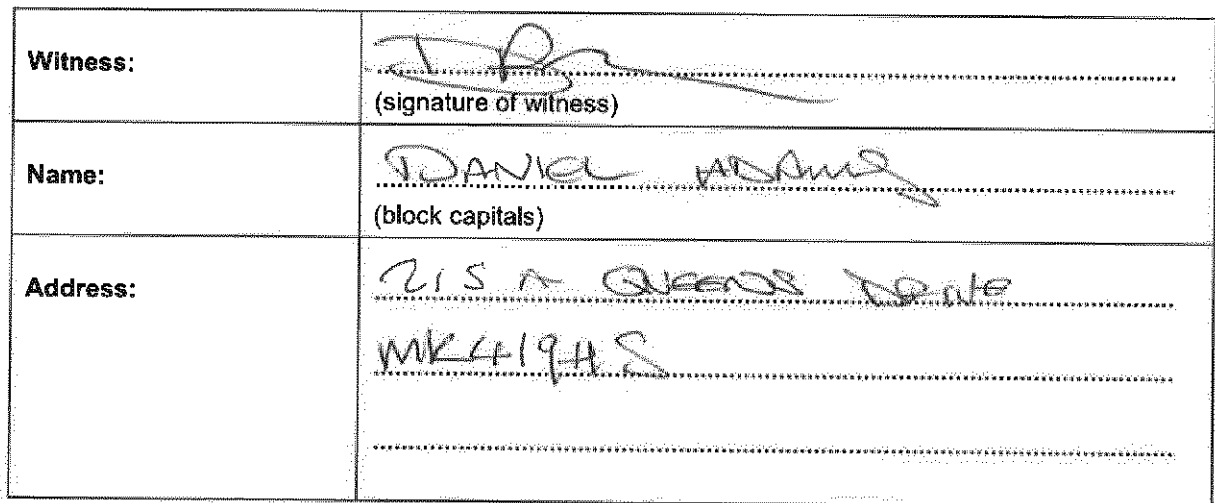 Witness:
(signature of witness)
Name: DANIEL ADAMS
(block capitals)
Address: 215 A QUEENS DRIVE
MK41 9HS